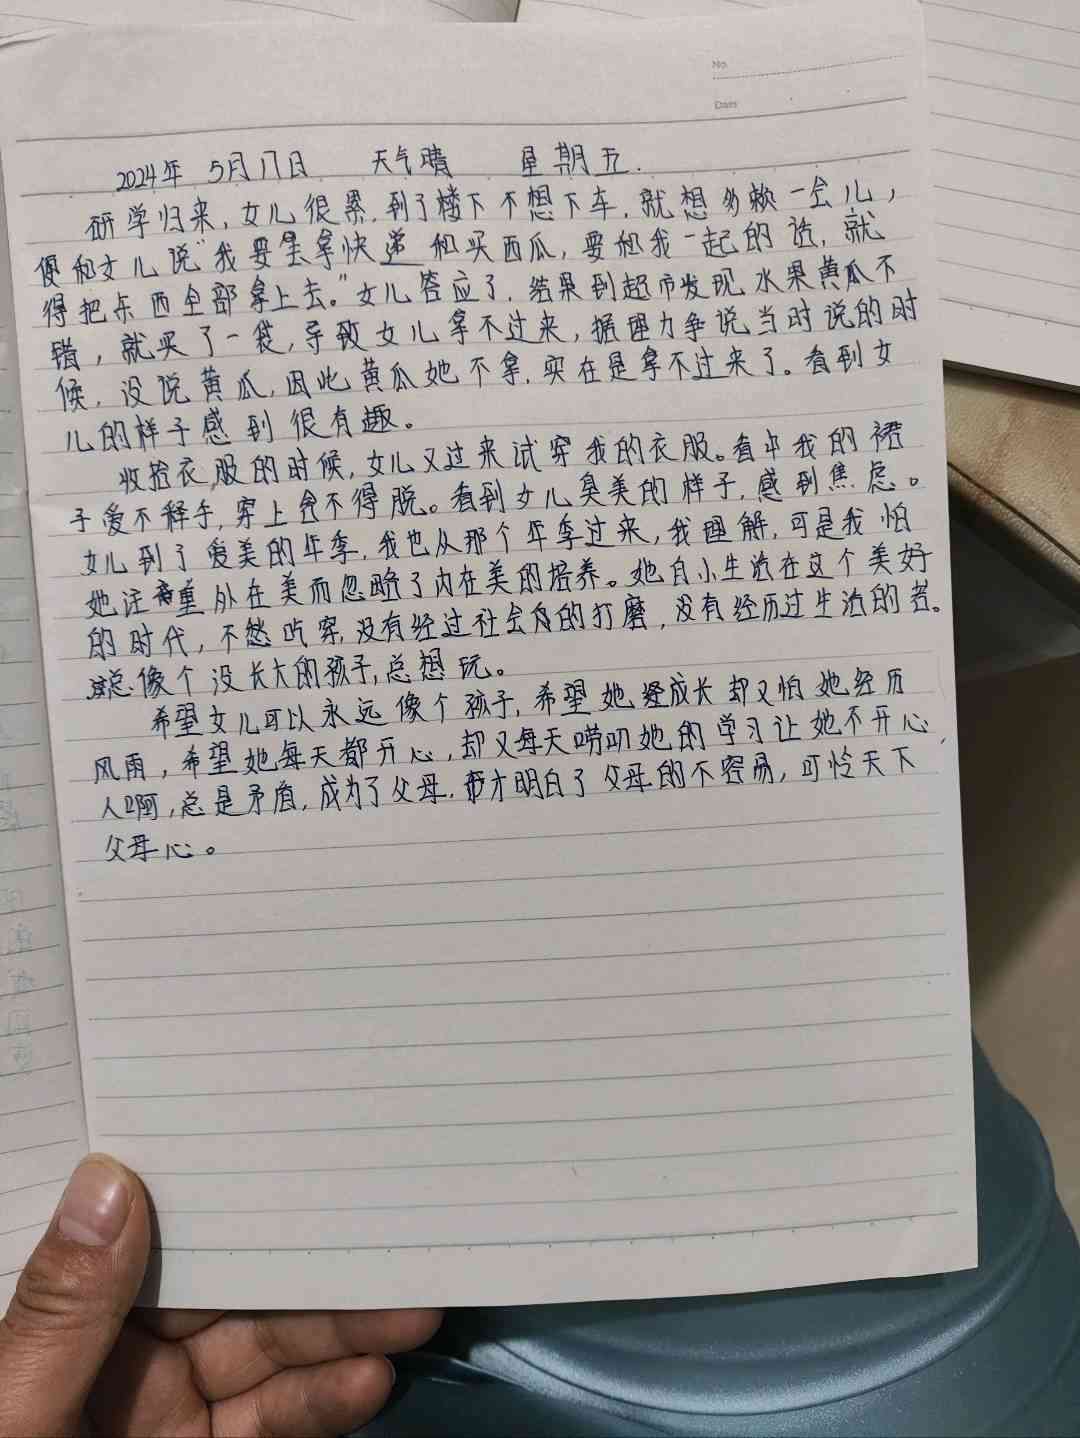 No.
Date
2024年 5月17日 天气晴 星期五.
研学归来,女儿很累,到了楼下不想下车,就想多赖一会儿,
便和女儿说"我要去拿快递和买西瓜,要和我一起的话,就
得把东西全部拿上去。"女儿答应了,结果到超市发现水果黄瓜不
错,就买了一袋,导致女儿拿不过来,据理力争说当时说的时
候,没说黄瓜,因此黄瓜她不拿,实在是拿不过来了。看到女
儿的样子感到很有趣。
收拾衣服的时候,女儿又过来试穿我的衣服。看中我的裙
子爱不释手,穿上舍不得脱。看到女儿臭美的样子,感到焦虑。
女儿到了爱美的年季,我也从那个年季过来,我理解,可是我怕
她注重外在美而忽略了内在美的培养。她自小生活在这个美好
的时代,不愁吃穿,没有经过社会的打磨,没有经历过生活的苦。
总像个没长大的孩子,总想玩。
希望女儿可以永远像个孩子,希望她经成长却又怕她经历
风雨,希望她每天都开心,却又每天唠叨她的学习让她不开心,
人啊,总是矛盾,成为了父母,才明白了父母的不容易,可怜天下
父母心。